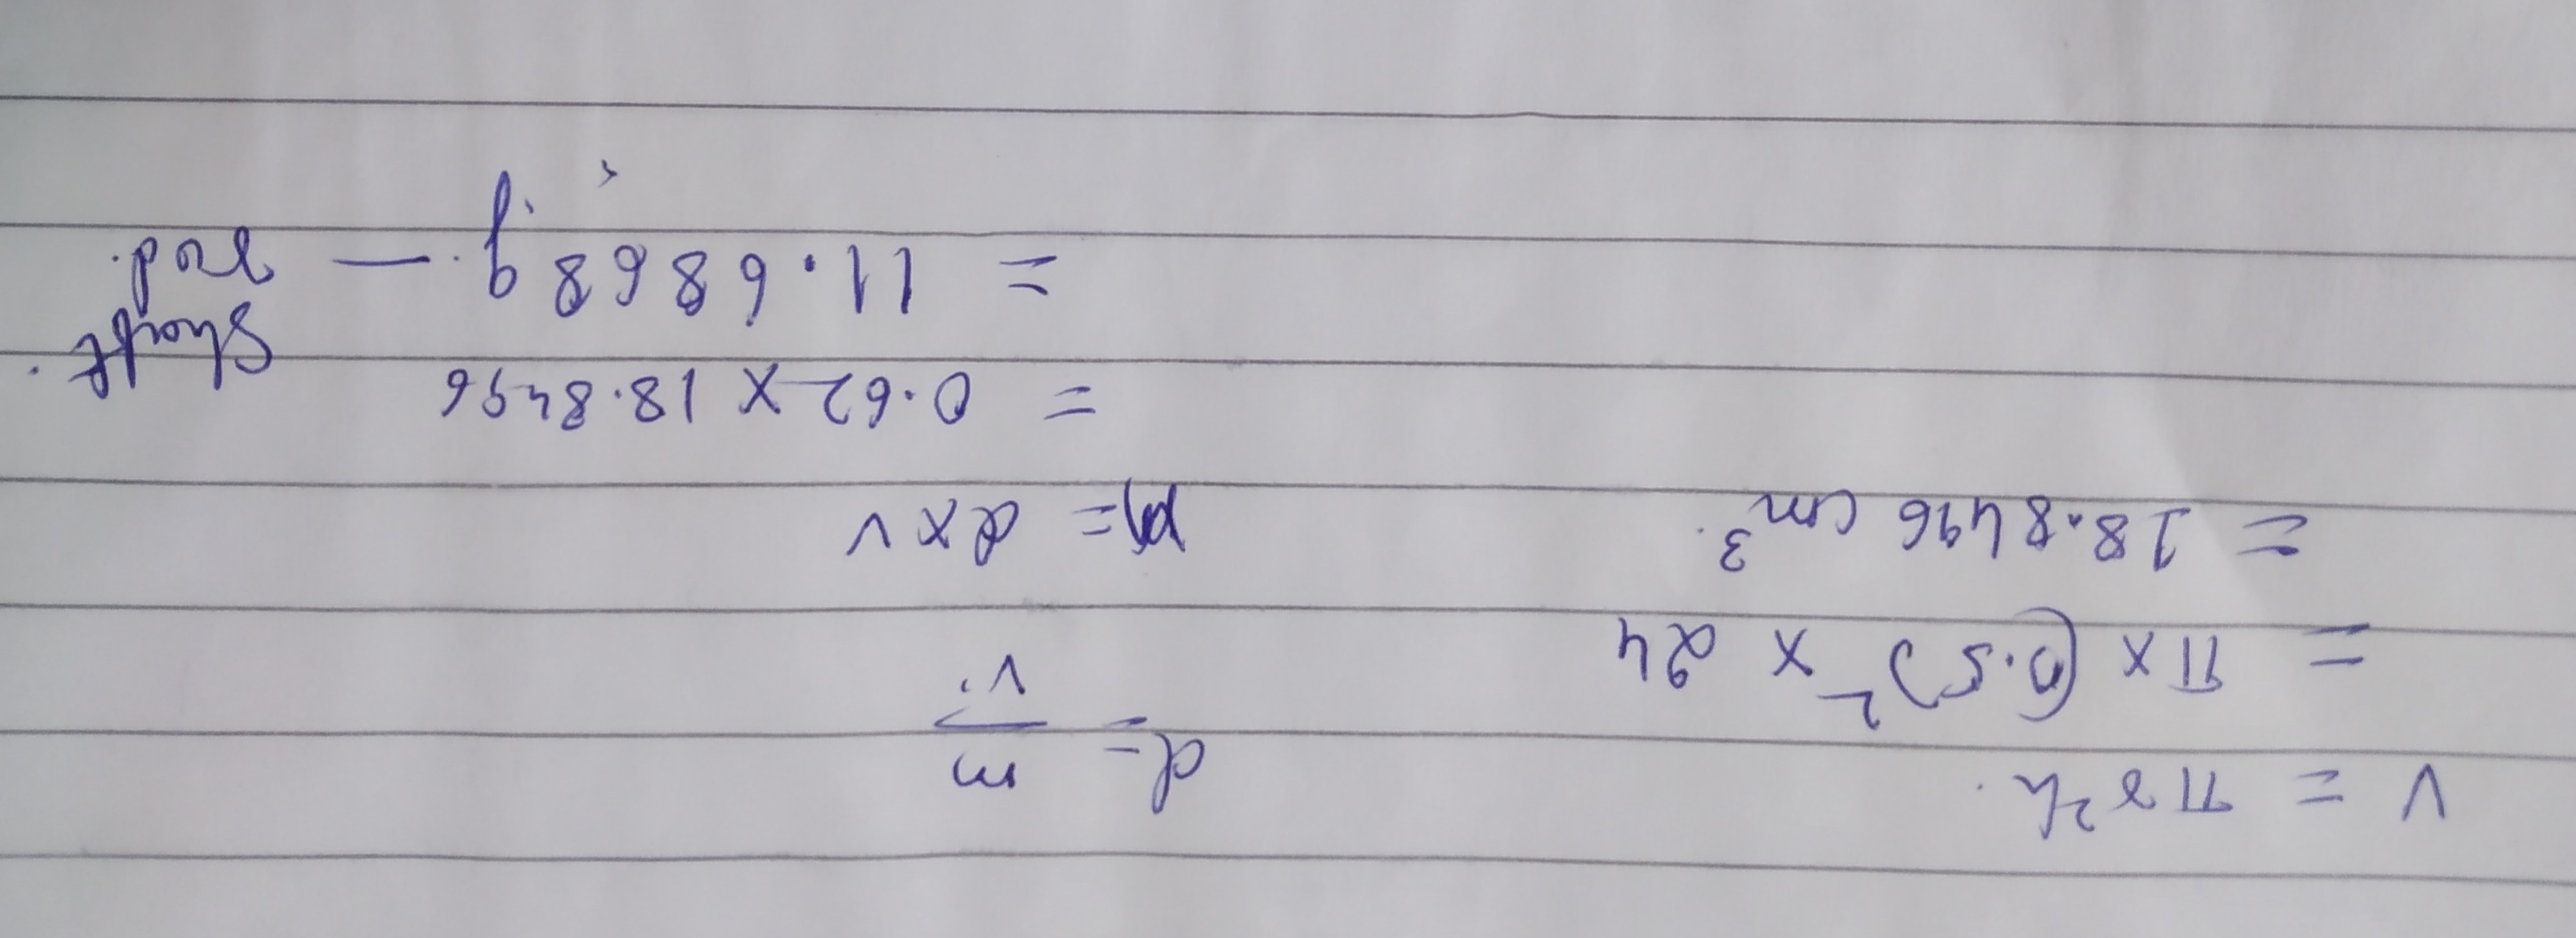 V = πr²h.
= π × (0.5)² × 24
= 18.8496 cm³.
d = m
V
m = d × v
= 0.62 × 18.8496
= 11.6868 g. — Shaft rod.